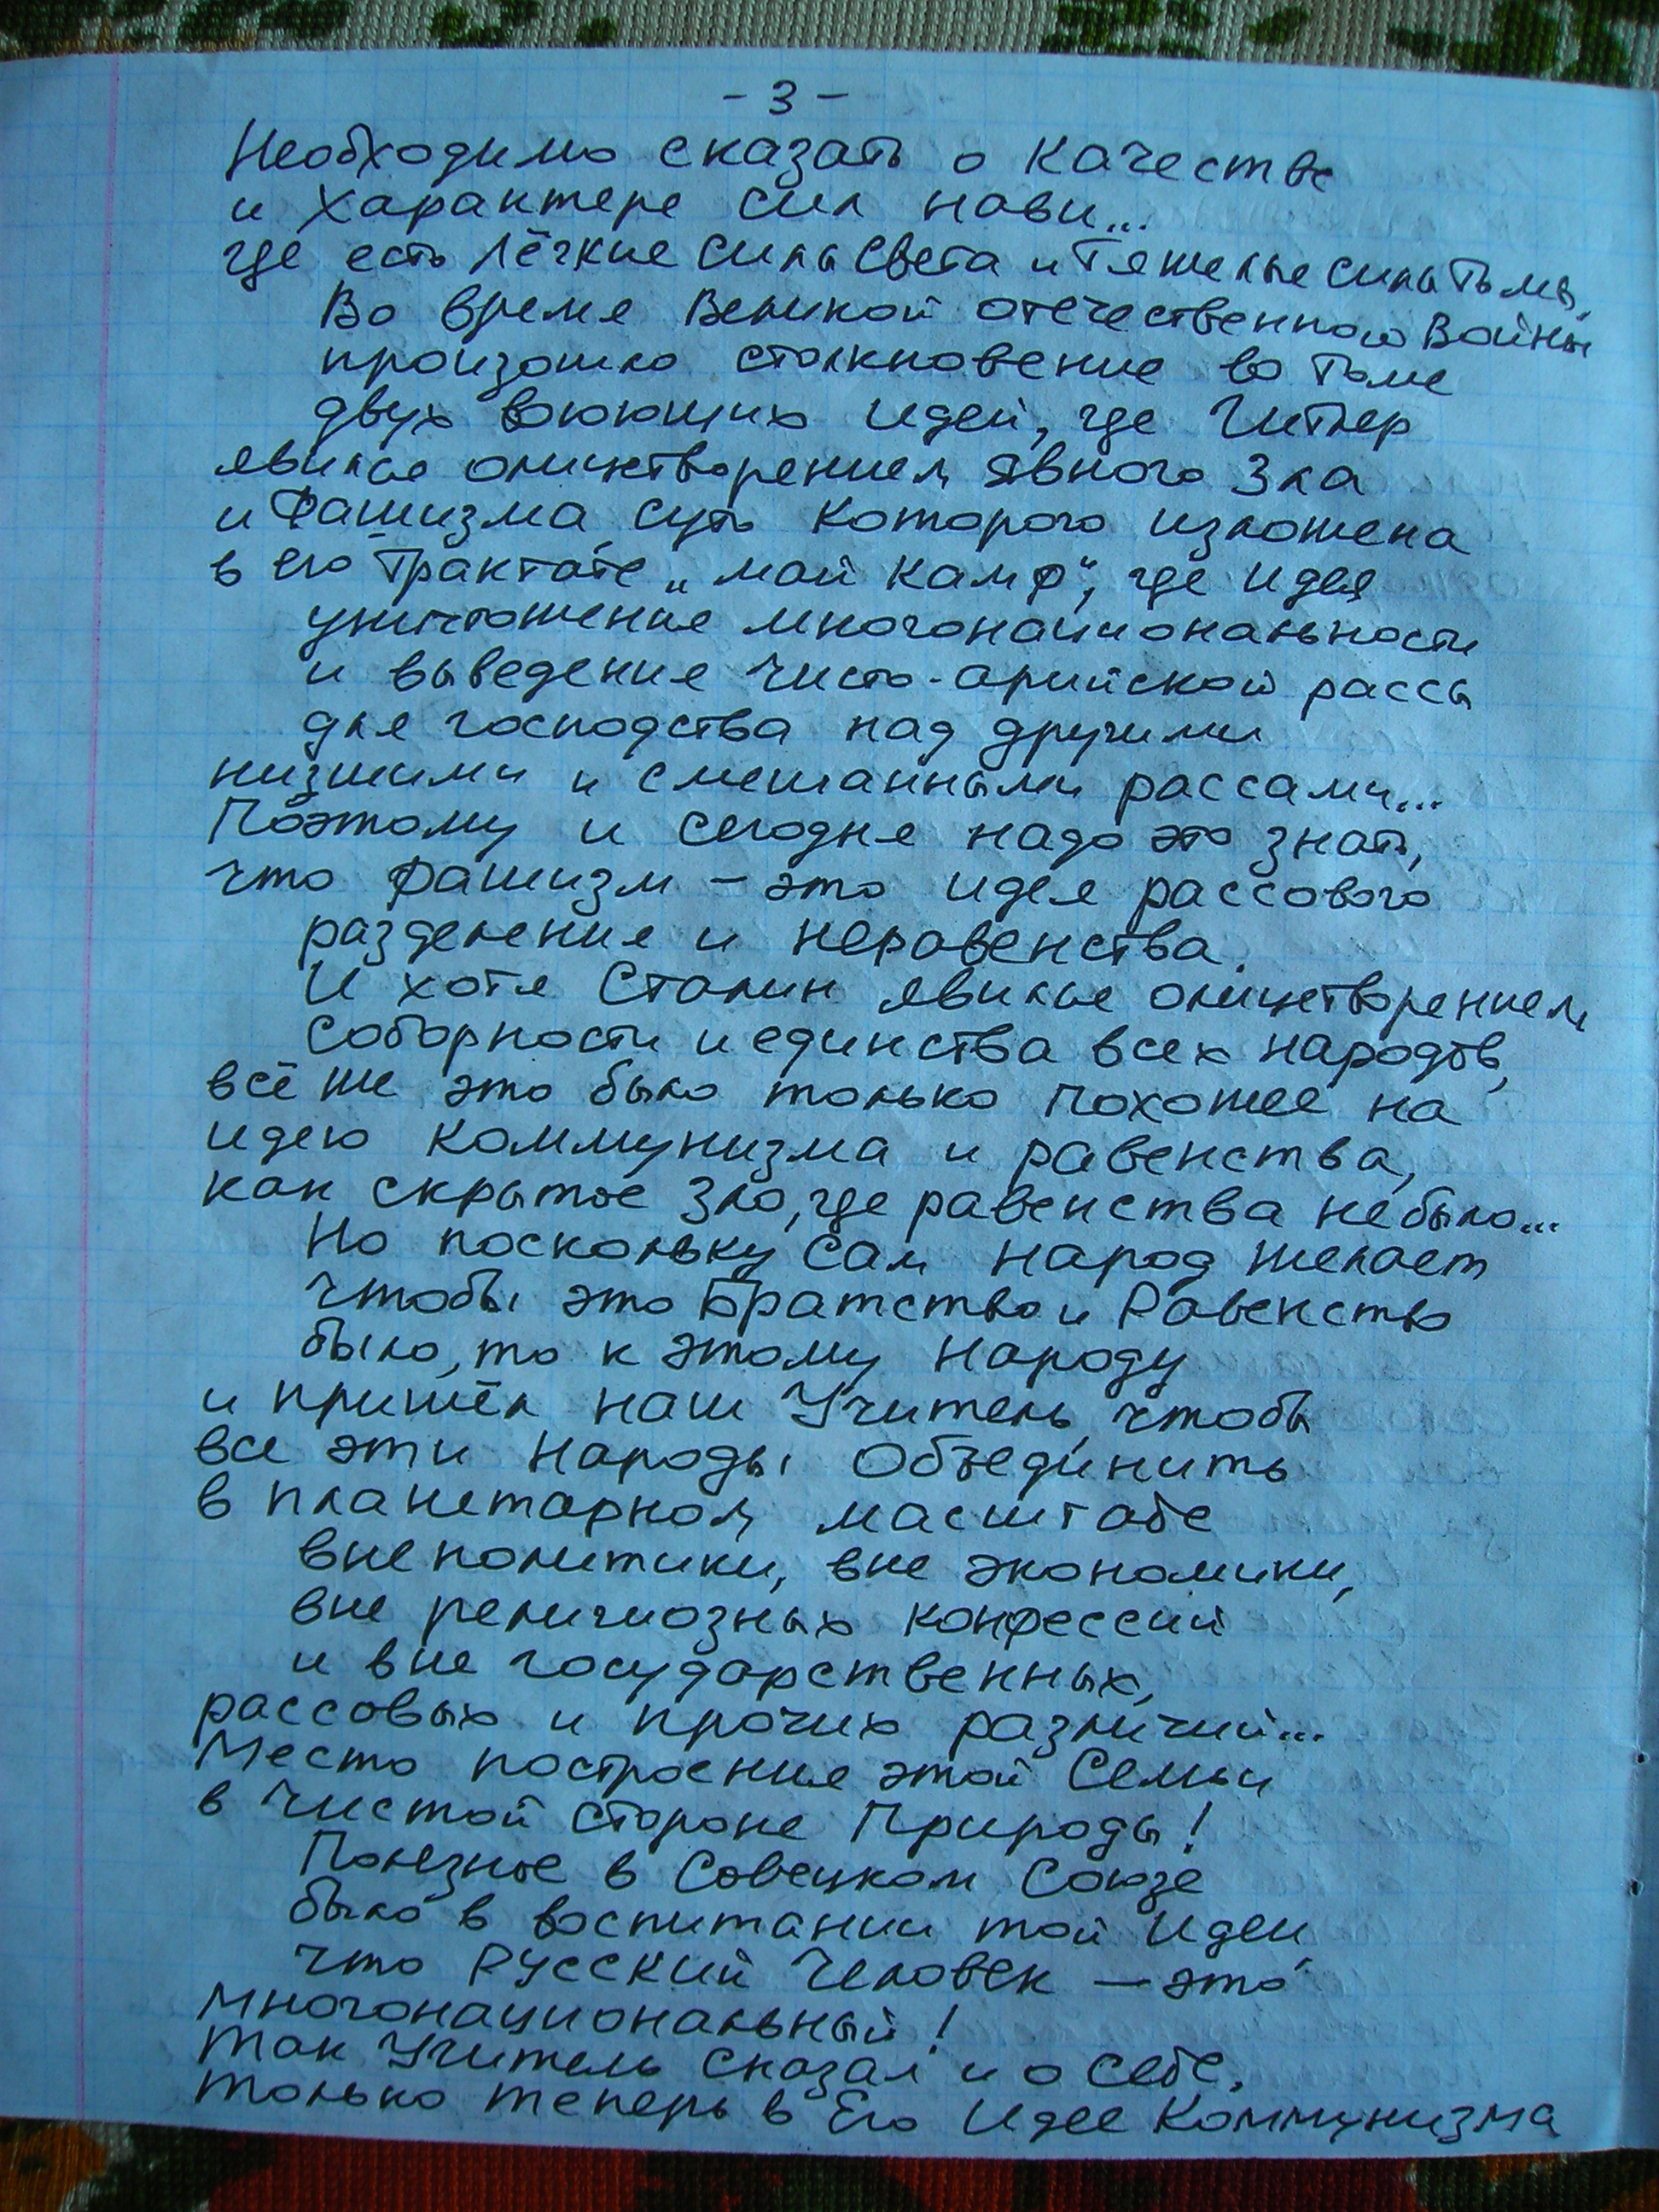 - 3 -
Необходимо сказать о качестве
и характере сил нави...
где есть лёгкие силы Света и тяжелые силы Тьмы.
Во время Великой отечественной Войны
произошло столкновение во Тьме
двух воюющих идей, где Гитлер
явился олицетворением явного Зла
и Фашизма, суть которого изложена
в его трактате „Май Камф", где идея
уничтожение многонациональности
и выведение чисто-арийской рассы
для господства над другими
низшими и смешанными рассами...
Поэтому и сегодня надо это знать,
что фашизм – это идея рассового
разделения и неравенства.
И хотя Сталин явился олицетворением
соборности и единства всех народов,
всё же это было только похожее на
идею коммунизма и равенства,
как скрытое Зло, где равенства не было...
Но поскольку Сам народ желает
чтобы это Братство и Равенство
было, то к этому народу
и пришёл наш Учитель, чтобы
все эти народы Объединить
в планетарном масштабе
вне политики, вне экономики,
вне религиозных конфессий
и вне государственных,
рассовых и прочих различий...
Место построения этой Семьи
в Чистой стороне Природы!
Полезное в Совецком Союзе
было в воспитании той идеи,
что Русский Человек – это
многонациональный!
Так Учитель сказал и о себе,
только теперь в Его Идее Коммунизма